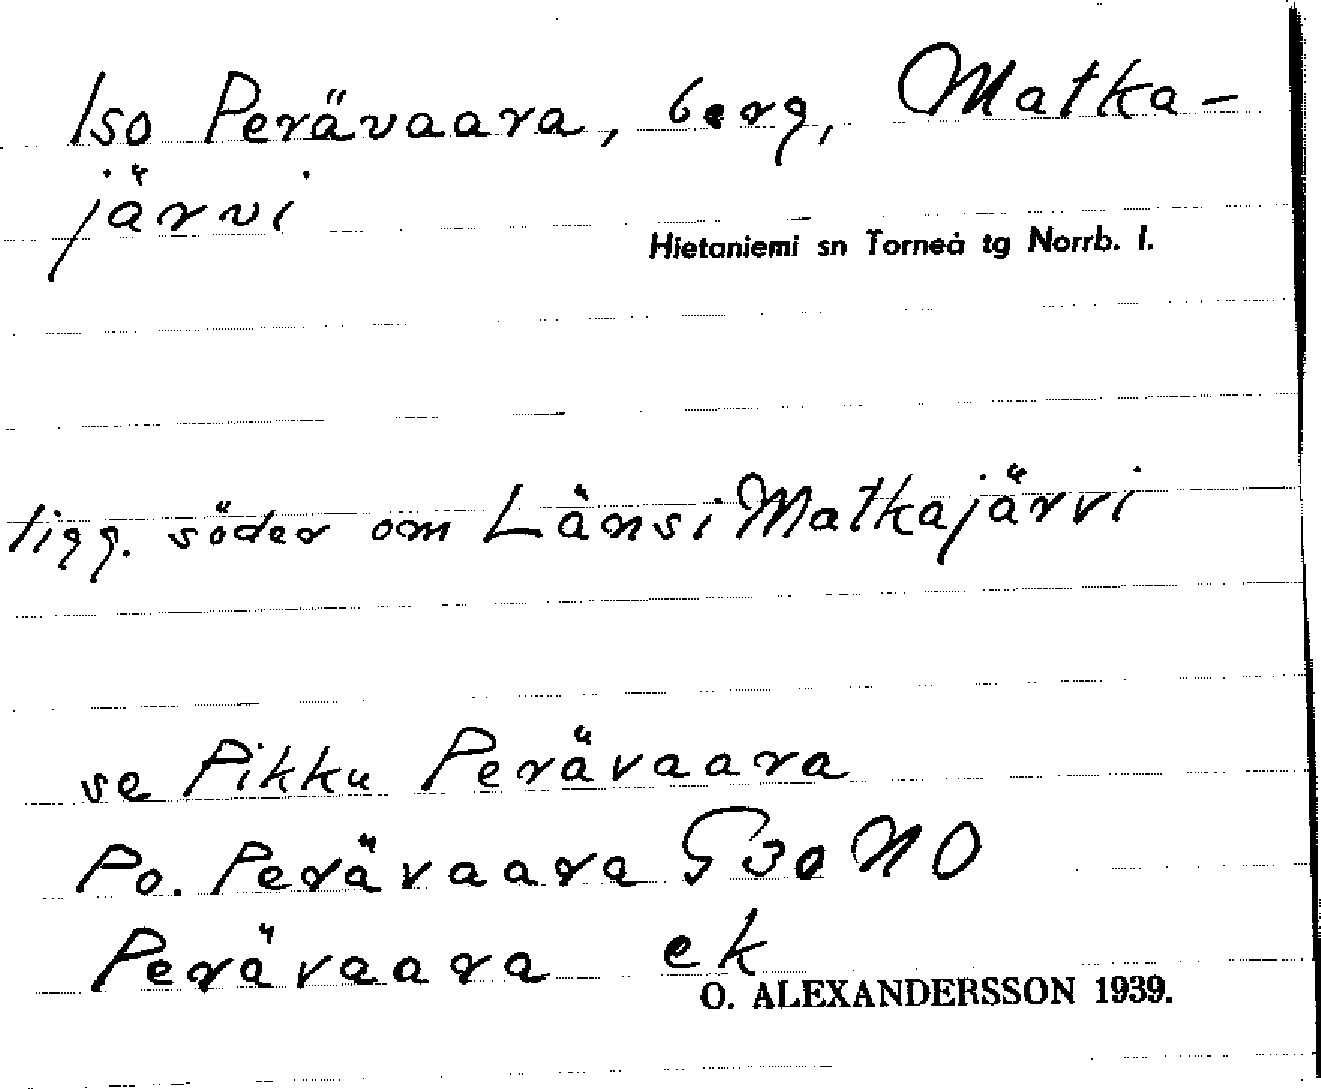 Iso Perävaara, berg, Matka-
järvi
Hietaniemi sn Torneå tg Norrb. l.
ligg. söder om Länsi Matkajärvi
se Pikku Perävaara
Po. Perävaara G30 NO
Perävaara ek
O. ALEXANDERSSON 1939.